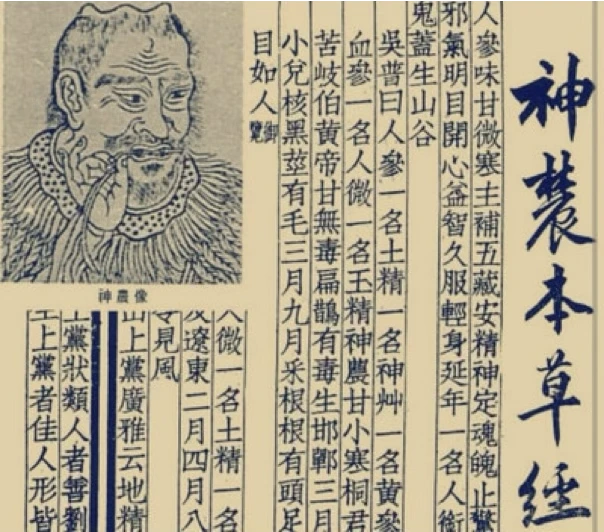 神農本草經
人參味甘微寒主補五藏安精神定魂魄止驚
邪氣明目開心益智久服輕身延年一名人銜
鬼蓋生山谷
吳普曰人參一名土精一名神艸一名黃參
血參一名人微一名玉精神農甘小寒桐君
苦岐伯黃帝甘無毒扁鵲有毒生邯鄲三月
小兌核黑莖有毛三月九月采根根有頭足
目如人御覽
神農像
人微一名土精一名
遼東二月四月八
見風
山上黨廣雅云地精
黨狀類人者善劉
上黨者佳人形皆